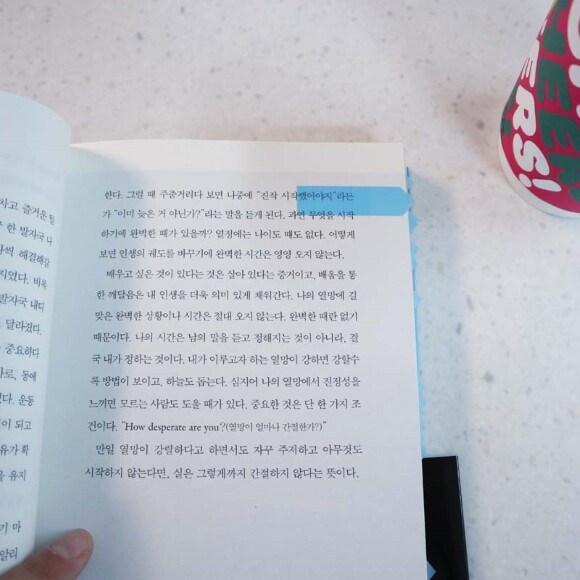 차고 즐거운 일
한 발자국 나
씩 해결해갈
지였다. 비록
발자국 내디
달라졌다.
중요하다
로, 동에
다. 운동
이 되고
유가 확
을 유지
기 마
알리
한다. 그럴 때 주춤거리다 보면 나중에 “진작 시작했어야지”라든
가 “이미 늦은 거 아닌가?”라는 말을 듣게 된다. 과연 무엇을 시작
하기에 완벽한 때가 있을까? 열정에는 나이도 때도 없다. 어떻게
보면 인생의 궤도를 바꾸기에 완벽한 시간은 영영 오지 않는다.
배우고 싶은 것이 있다는 것은 살아 있다는 증거이고, 배움을 통
한 깨달음은 내 인생을 더욱 의미 있게 채워간다. 나의 열망에 걸
맞은 완벽한 상황이나 시간은 절대 오지 않는다. 완벽한 때란 없기
때문이다. 나의 시간은 남의 말을 듣고 정해지는 것이 아니라, 결
국 내가 정하는 것이다. 내가 이루고자 하는 열망이 강하면 강할수
록 방법이 보이고, 하늘도 돕는다. 심지어 나의 열망에서 진정성을
느끼면 모르는 사람도 도울 때가 있다. 중요한 것은 단 한 가지 조
건이다. “How desperate are you?(열망이 얼마나 간절한가?)”
만일 열망이 강렬하다고 하면서도 자꾸 주저하고 아무것도
시작하지 않는다면, 실은 그렇게까지 간절하지 않다는 뜻이다.
ERS!